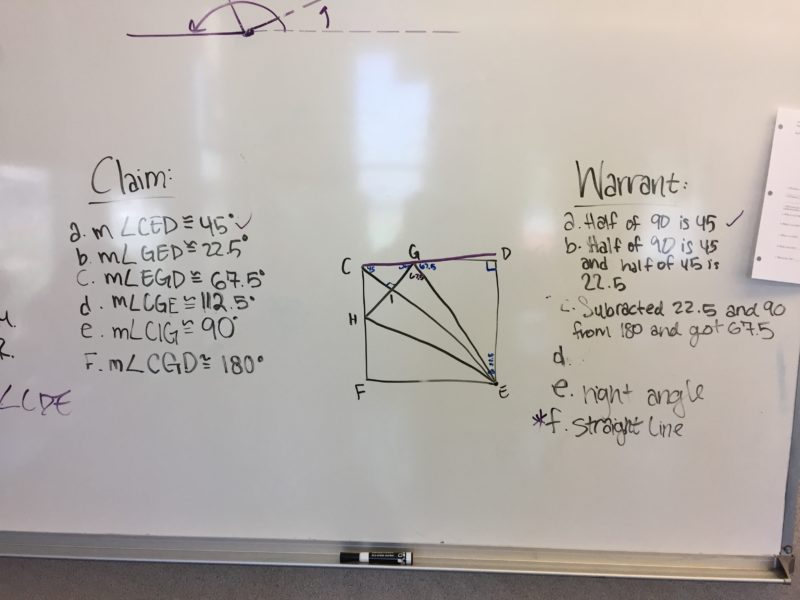 Claim:
a. m∠CED ≅ 45° ✓
b. m∠GED ≅ 22.5°
c. m∠EGD ≅ 67.5°
d. m∠CGE ≅ 112.5°
e. m∠CIG ≅ 90°
F. m∠CGD ≅ 180°
∠CDE
C
G
D
45
67.5
67.5
I
H
F
E
Warrant:
a. Half of 90 is 45 ✓
b. Half of 90 is 45
and half of 45 is
22.5
c. Subracted 22.5 and 90
from 180 and got 67.5
d.
e. right angle
*f. straight line